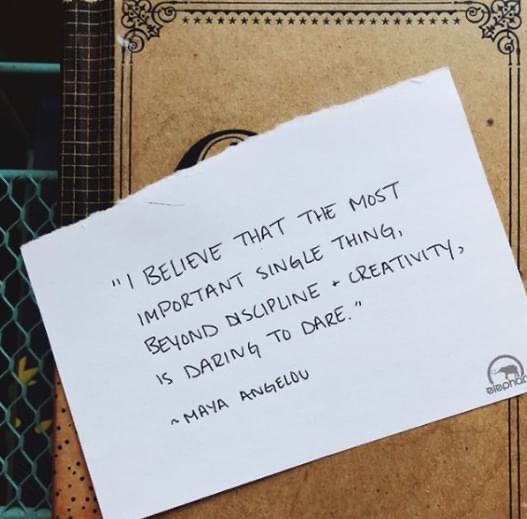 "I BELIEVE THAT THE MOST
IMPORTANT SINGLE THING,
BEYOND DISCIPLINE + CREATIVITY,
IS DARING TO DARE."
~ MAYA ANGELOU